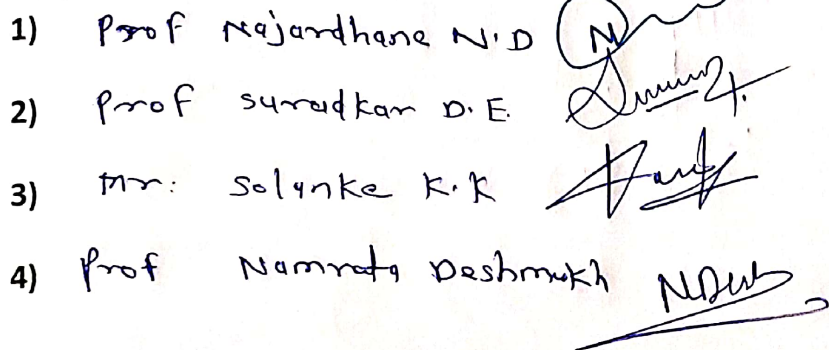 1) Prof Najardhane N.D
2) Prof suradkar D.E.
3) Mr: Solanke K.K
4) Prof Namrata Deshmukh